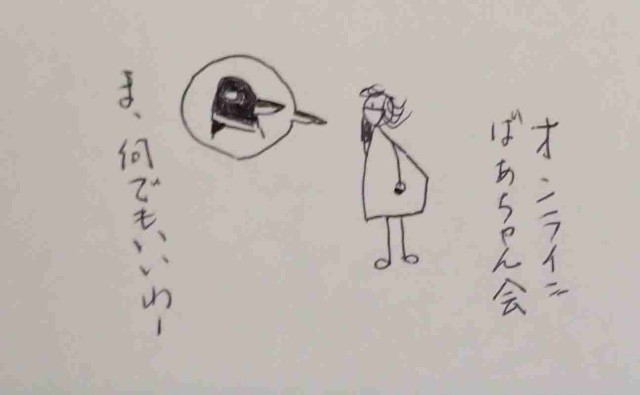 オンライン
ばあちゃん会
ま、何でもいいわー